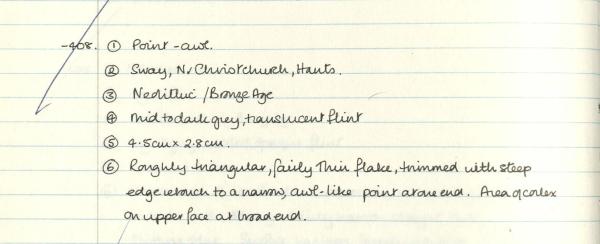 -408. ① Point-awl.
② Sway, Nr Christchurch, Hants.
③ Neolithic / Bronze Age
④ Mid to dark grey, translucent flint
⑤ 4.5cm x 2.8cm.
⑥ Roughly triangular, fairly thin flake, trimmed with steep
edge retouch to a narrow, awl-like point at one end. Area of cortex
on upper face at broad end.